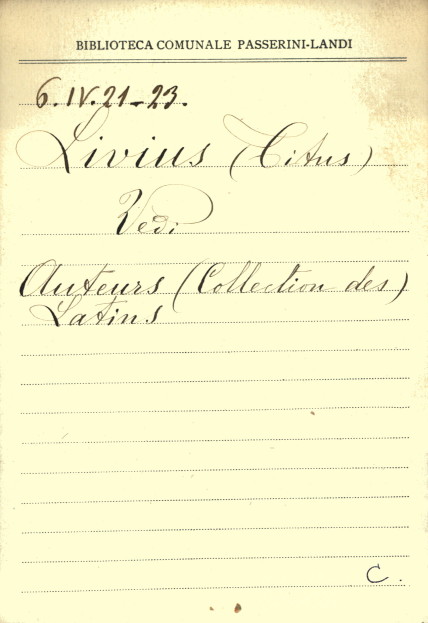 BIBLIOTECA COMUNALE PASSERINI-LANDI
6.IV.21-23.
Livius (Titus)
Vedi
Auteurs (Collection des)
Latins
C.